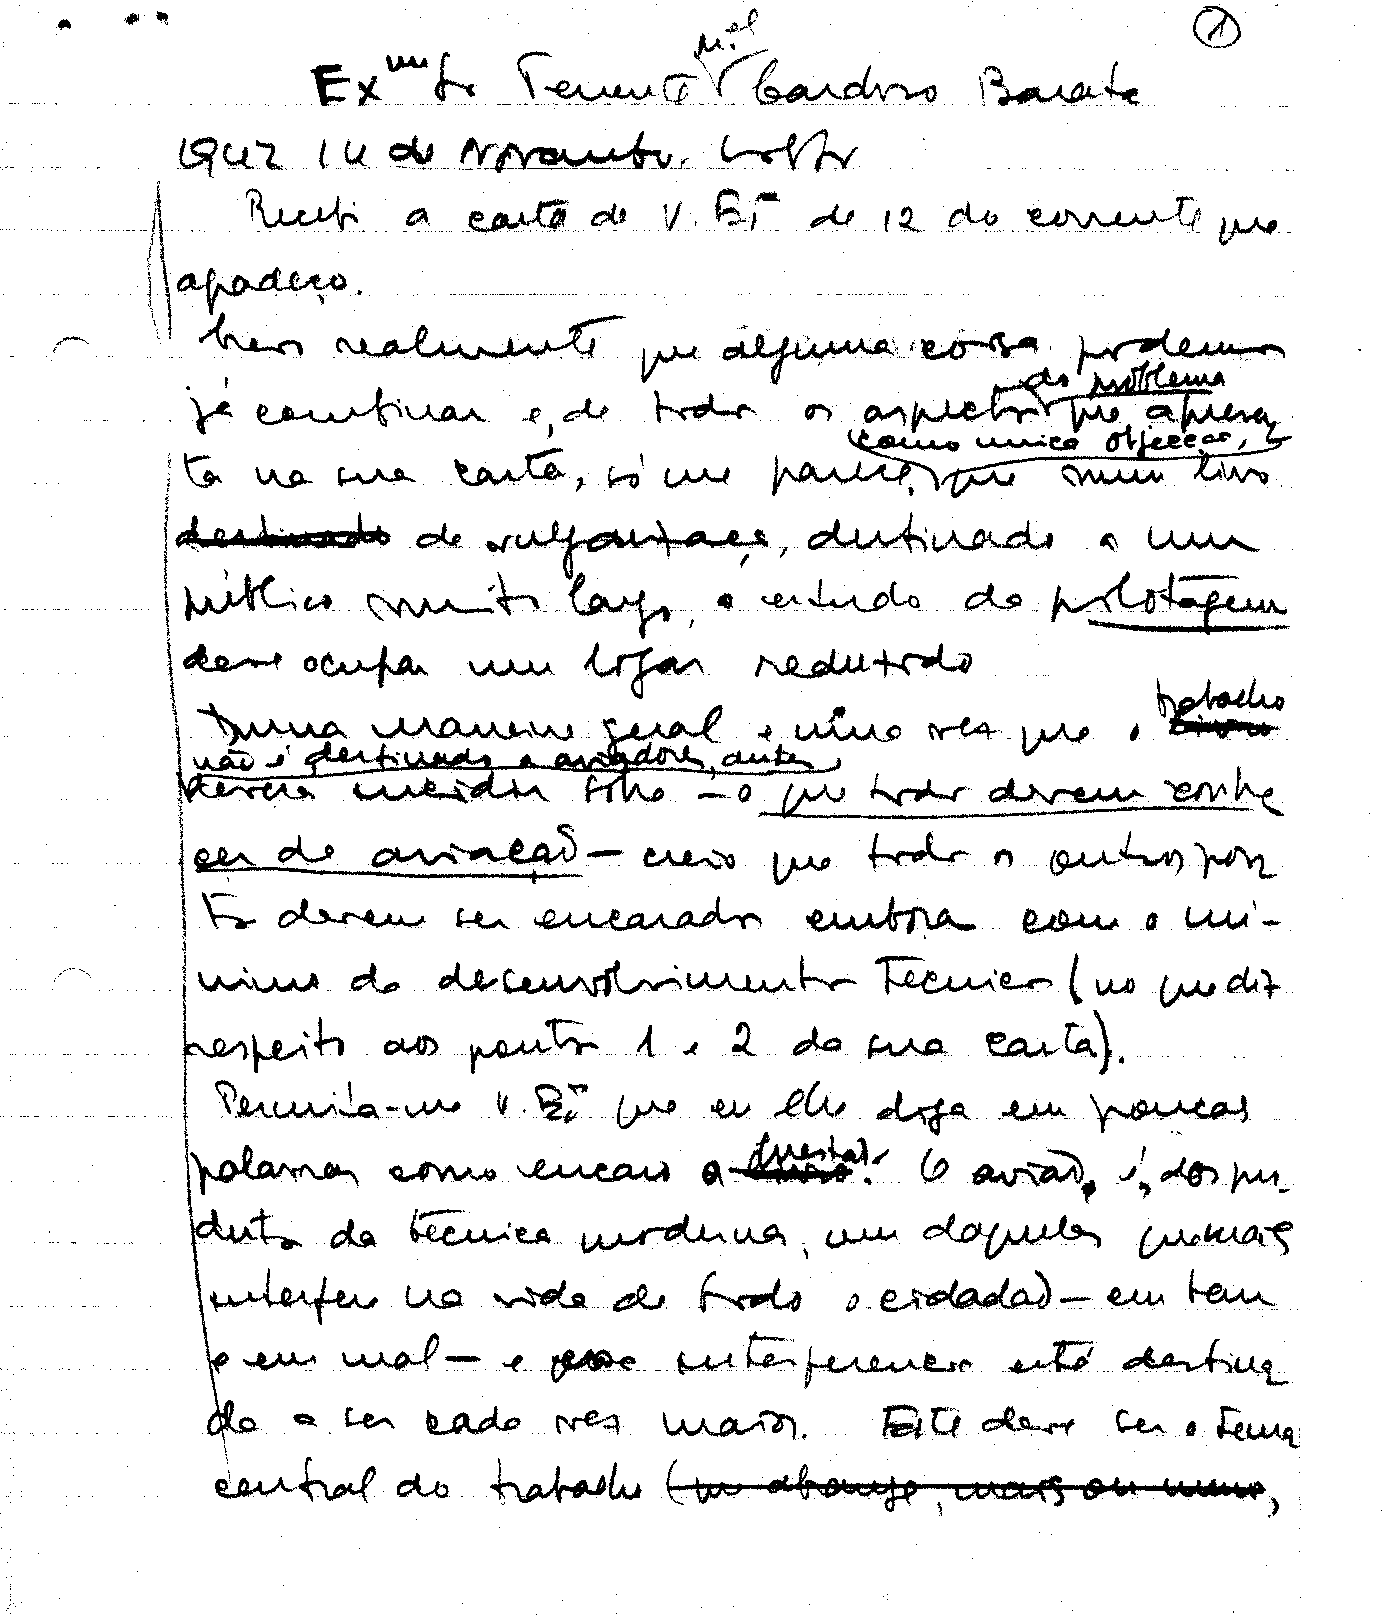 1
Exmo Sr Tenente Mel Cardoso Barata
1942 14 de Novembro.
Recebi a carta de V. Exª de 12 do corrente que
agradeço.
Creio realmente que alguma coisa podemos
do problema
já combinar e, de todos os aspectos que apresen
como unica objecção,
ta na sua carta, só me parece, que num livro
destinado de vulgarização, destinado a um
público muito largo, o estudo da pilotagem
deve ocupar um logar reduzido
trabalho
Duma maneira geral e uma vez que o livro
não é destinado a aviadores, antes
deverá incidir sobre — o que todos devem conhe
cer de aviação — creio que todos os outros pon
tos devem ser encarados embora com o mi-
nimo de desenvolvimento tecnico (no que diz
respeito aos pontos 1 e 2 da sua carta).
Permita-me V. Exª que eu lhe diga em poucas
questão.
palavras como encaro a O avião, é, dos pro
dutos da técnica moderna, um daqueles que mais
interfere na vida de todo o cidadão — em bem
e em mal — e essa interferencia está destina
da a ser cada vez maior. Este deve ser o tema
central do trabalho (que abrange, mais ou menos,